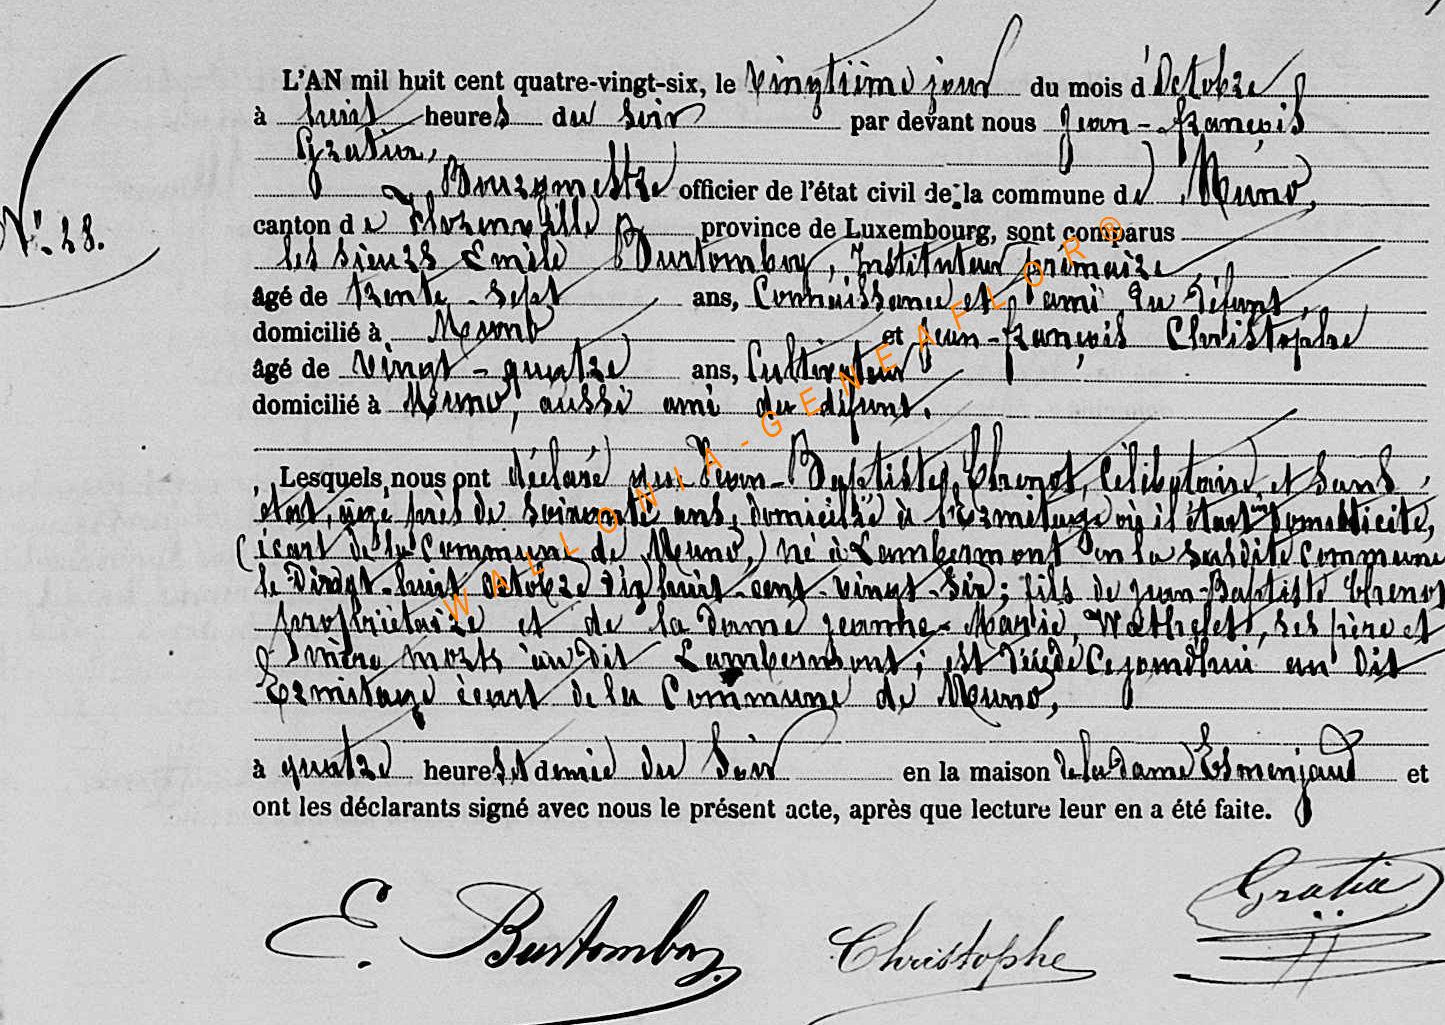 L'AN mil huit cent quatre-vingt-six, le vingtième jour du mois d'Octobre
à huit heures du soir par devant nous Jean-françois
Gratia,
Bourgmestre officier de l'état civil de la commune de Muno,
N°. 28.
canton de Florenville province de Luxembourg, sont comparus
les sieurs Emile Burtomboy, Instituteur primaire,
âgé de trente-sept ans, Connaissance et ami du défunt,
domicilié à Muno et Jean-françois Christophe
âgé de vingt-quatre ans, Cultivateur
domicilié à Muno, aussi ami du défunt.
Lesquels nous ont déclaré que Jean-Baptiste Threnot, Célibataire et sans
état, agé près de soixante ans, domicilié à l'Ermitage où il était domestique,
(écart de la Commune de Muno,) né à Lambermont en la susdite Commune
le Vingt-huit octobre dix huit-cent-vingt-six; fils de Jean-Baptiste Threnot
propriétaire et de la dame Jeanne-Marie Wathelet, ses père et
mère morts au dit Lambermont; est décédé cejourd'hui au dit
Ermitage écart de la Commune de Muno,
à quatre heures et demie du Soir en la maison de la dame Esmenjaud et
ont les déclarants signé avec nous le présent acte, après que lecture leur en a été faite.
E. Burtomboy Christophe Gratia
WALLONIA-GENEAFLOR®